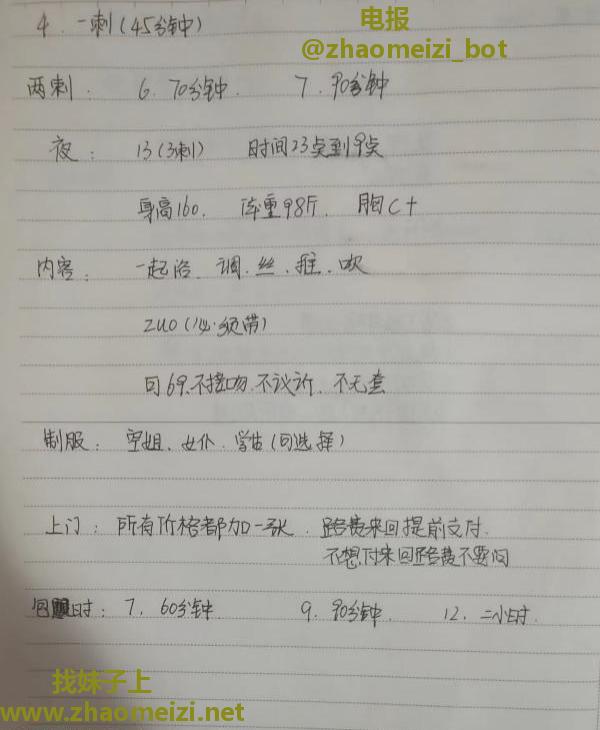 电报
@zhaomeizi_bot
4. 一刺(45分钟)
两刺: 6. 70分钟. 7. 90分钟
夜: 13(3刺) 时间23点到9点
身高160. 体重98斤. 胸C+
内容: 一起浴. 调. 丝. 推. 吹
zuo(必须带)
可69.不接吻.不议价.不无套
制服: 空姐. 女仆. 学生(可选择)
上门: 所有价格都加一张. 路费来回提前支付.
不想付来回路费不要问
包时: 7. 60分钟. 9. 90分钟. 12. 二小时.
找妹子上
www.zhaomeizi.net